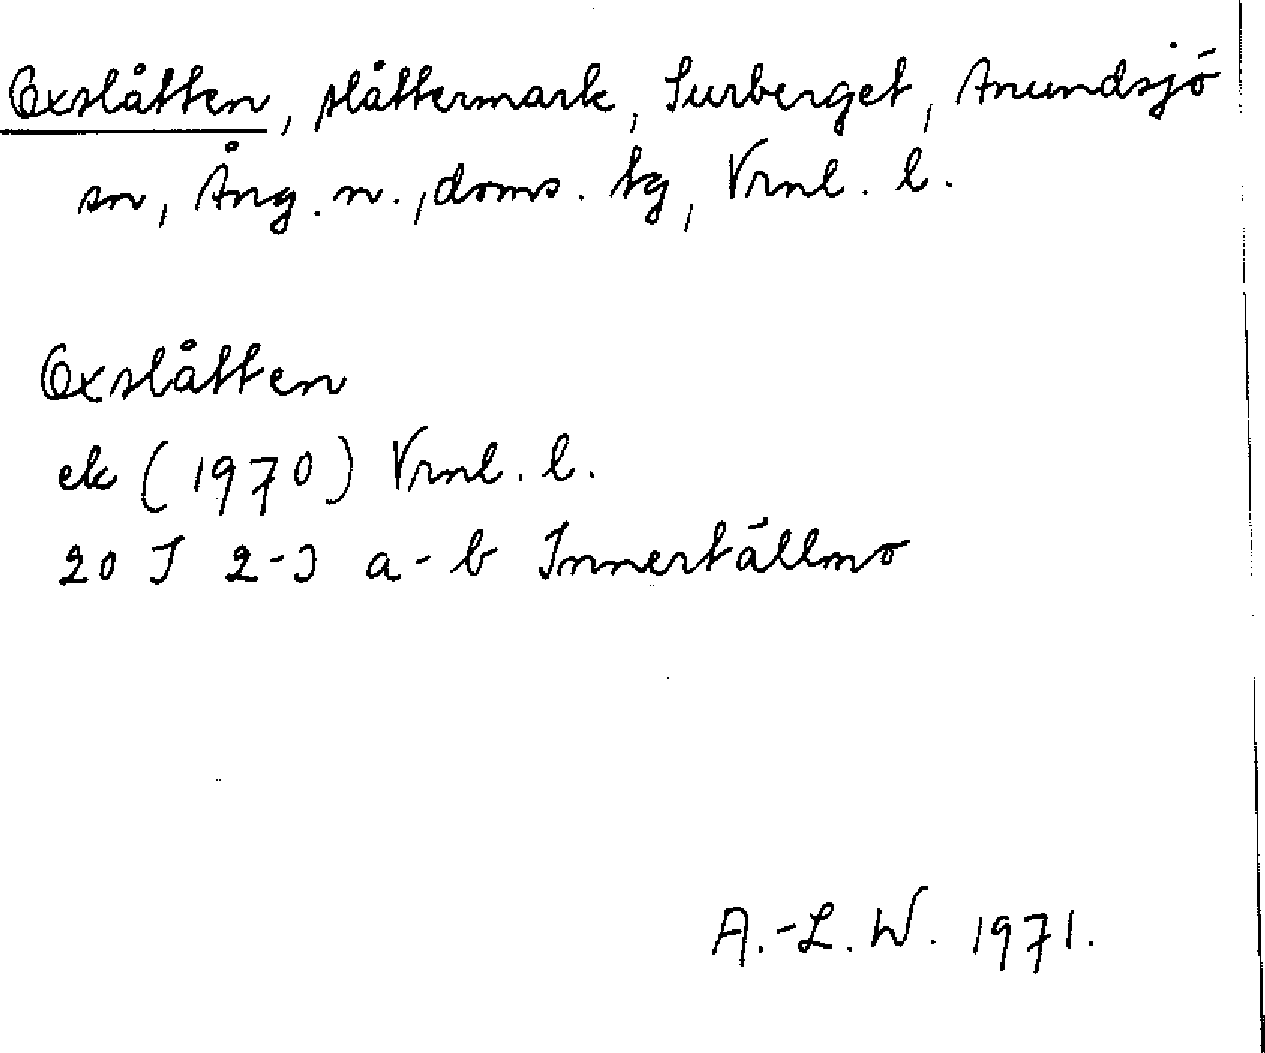 Oxslåtten, slåttermark, Surberget, Anundsjö
sn, Ång. n., doms. tg, Vrnl. l.
Oxslåtten
ek (1970) Vrnl. l.
20 J 2-3 a-b Innertällmo
A.-L. W. 1971.